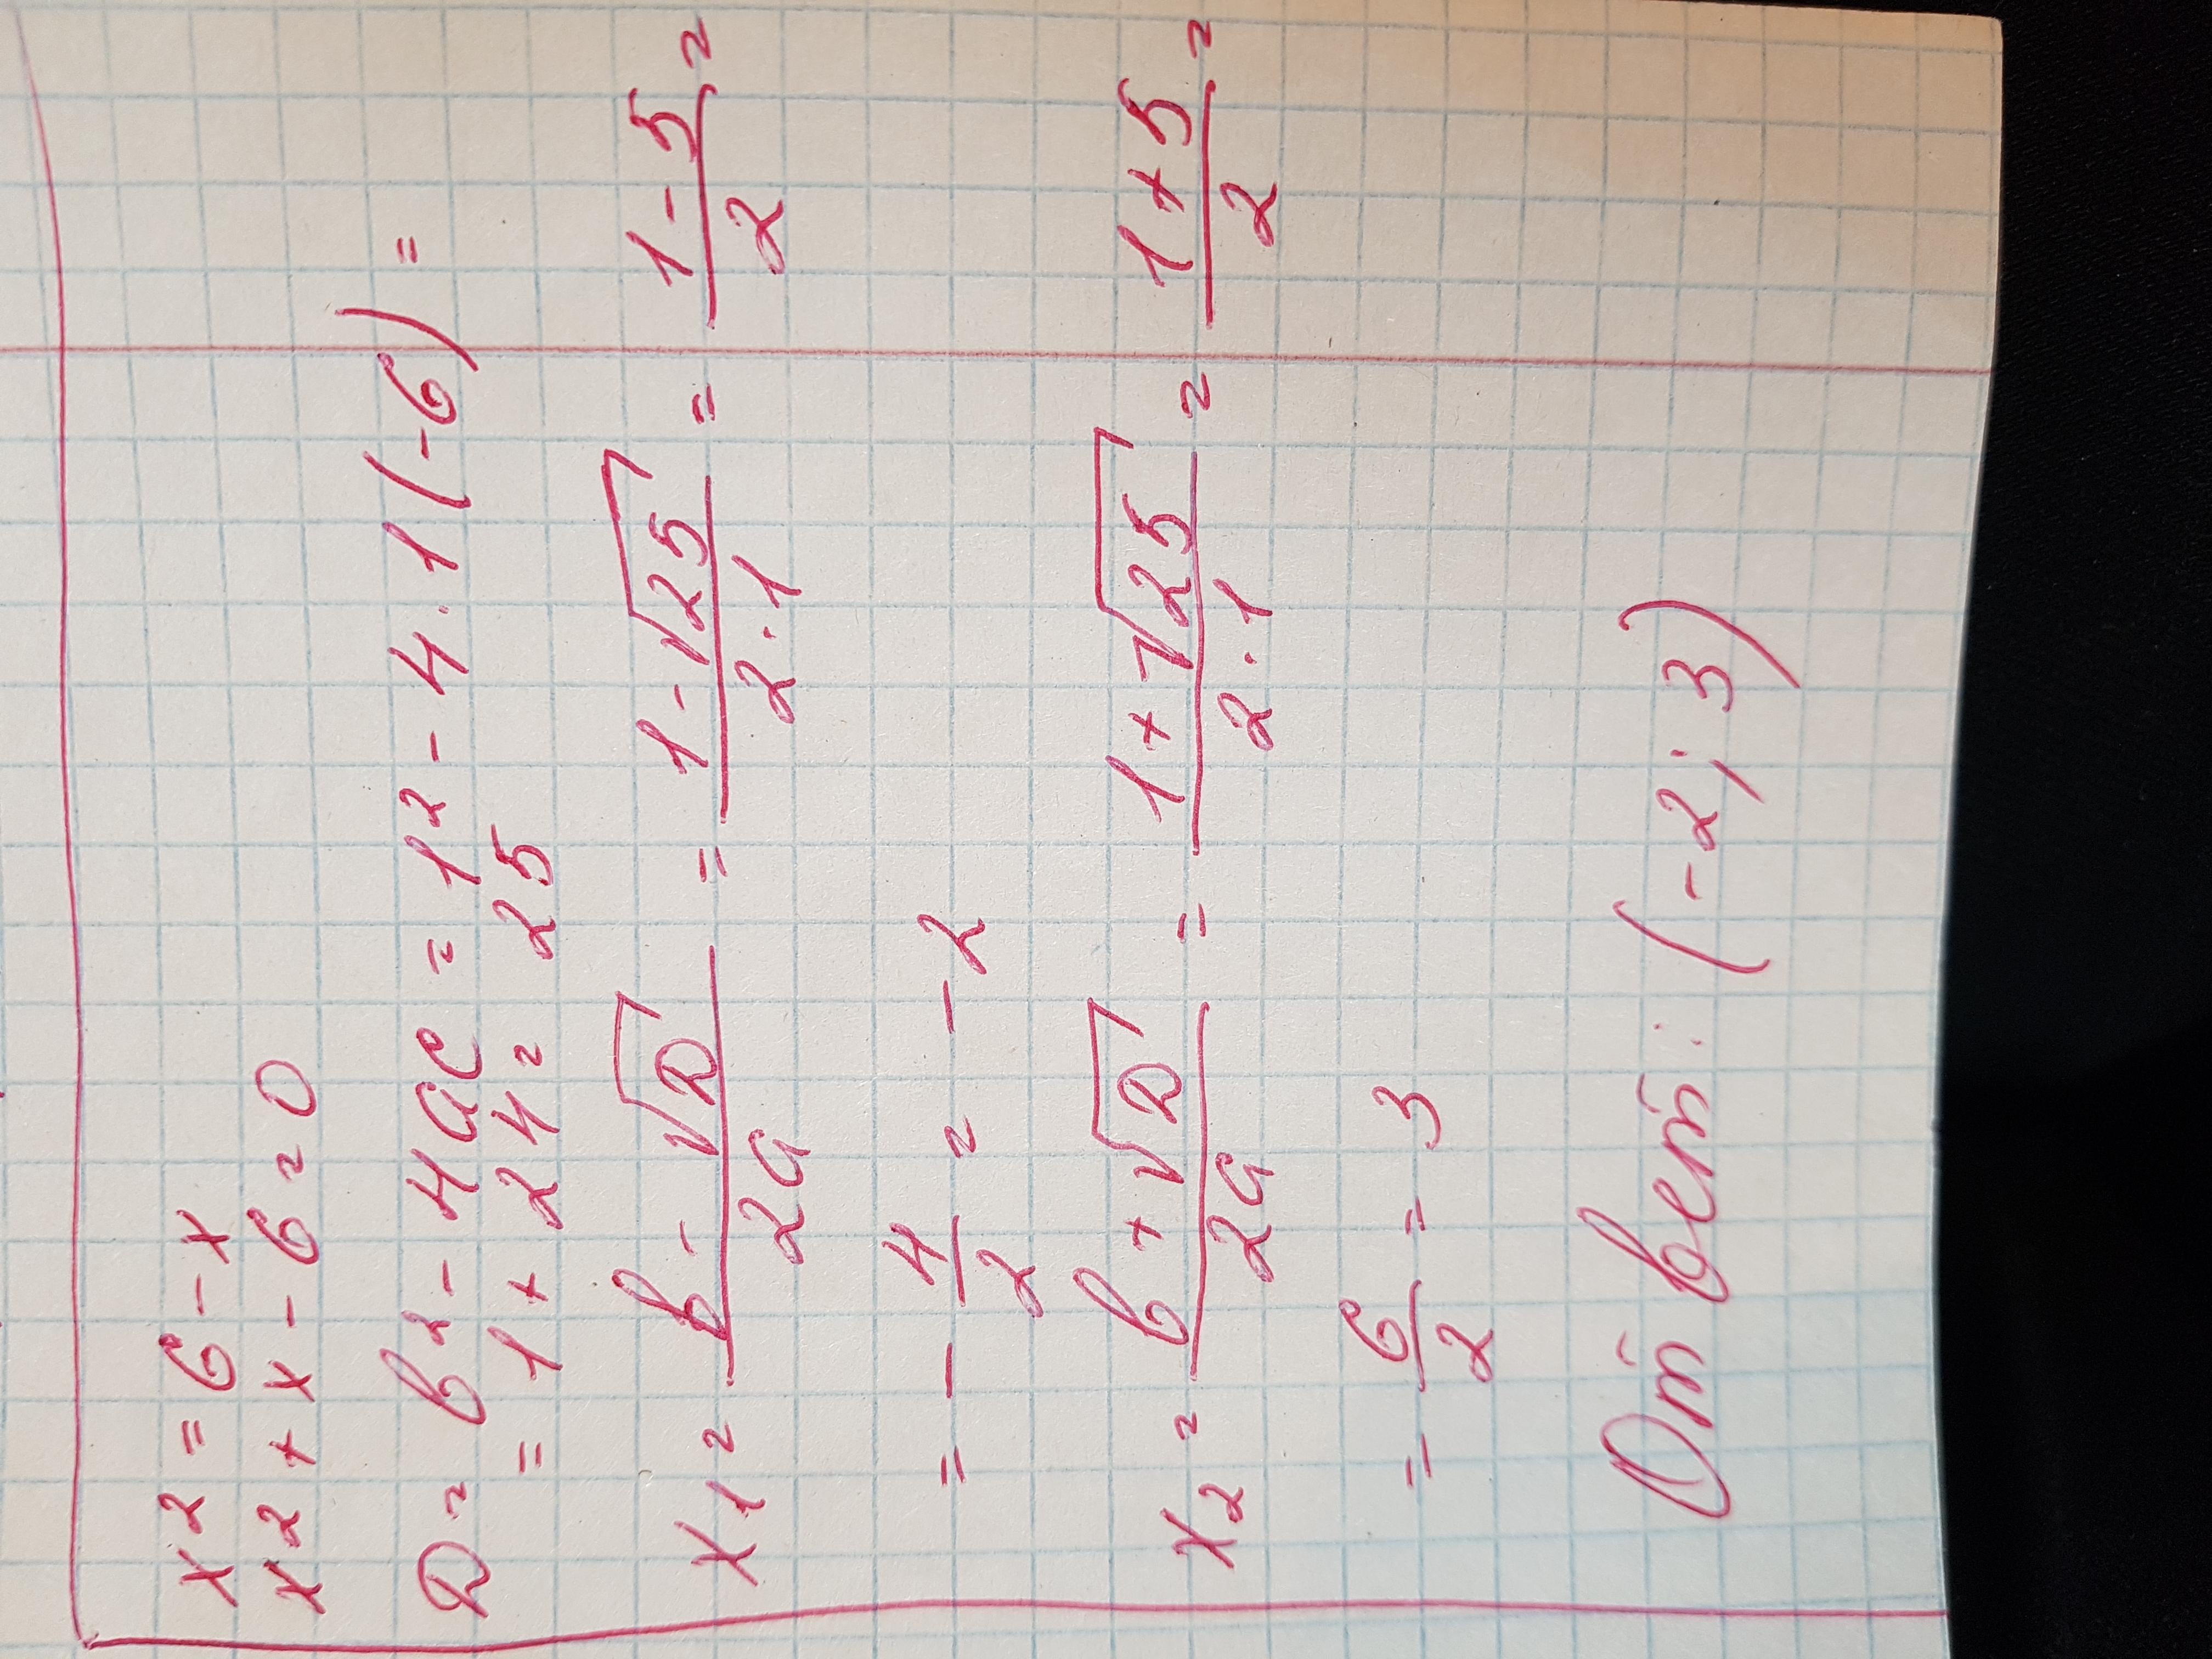 x² = 6 - x
x² + x - 6 = 0
D = b² - 4ac = 1² - 4 · 1 (-6) =
= 1 + 24 = 25
x₁ = (b - √D)/(2a) = (1 - √25)/(2 · 1) = (1 - 5)/2 =
= - 4/2 = - 2
x₂ = (b + √D)/(2a) = (1 + √25)/(2 · 1) = (1 + 5)/2 =
= 6/2 = 3
Ответ: (-2; 3)